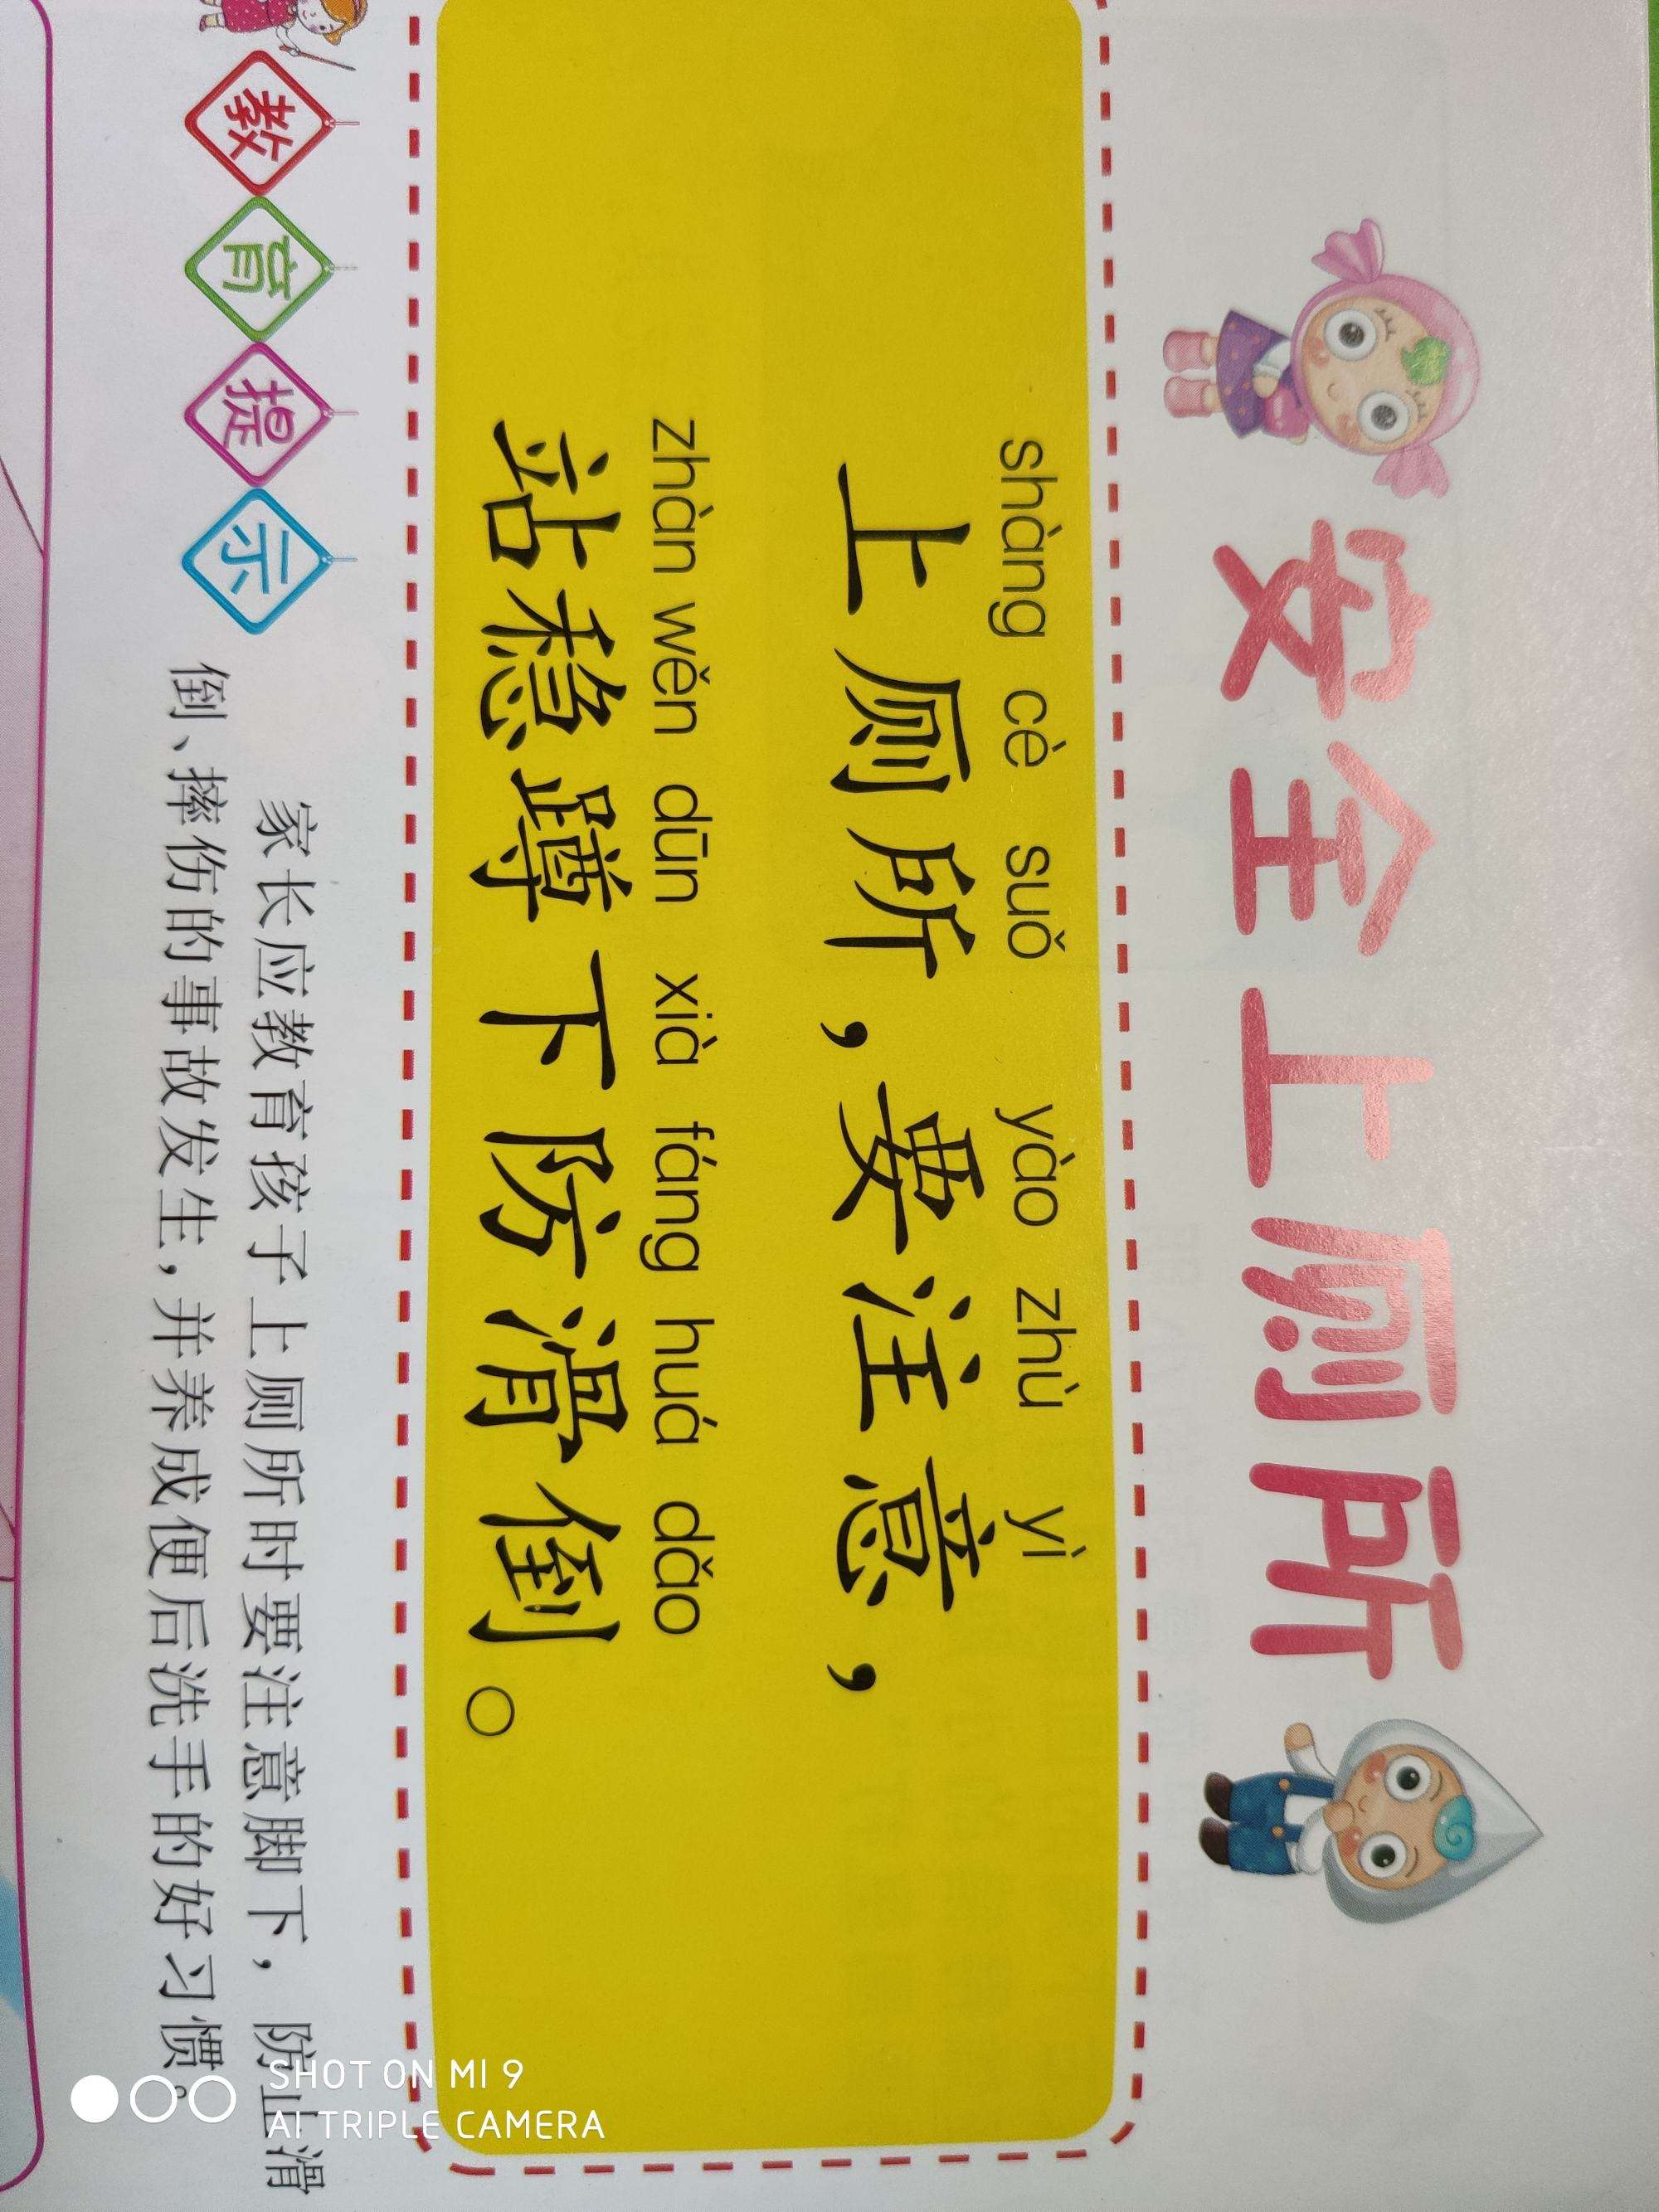 安全上厕所
shàng cè suǒ yào zhù yì
上厕所，要注意，
zhàn wěn dūn xià fáng huá dǎo
站稳蹲下防滑倒。
教育提示
家长应教育孩子上厕所时要注意脚下，防止滑
倒、摔伤的事故发生，并养成便后洗手的好习惯。
SHOT ON MI 9
AI TRIPLE CAMERA